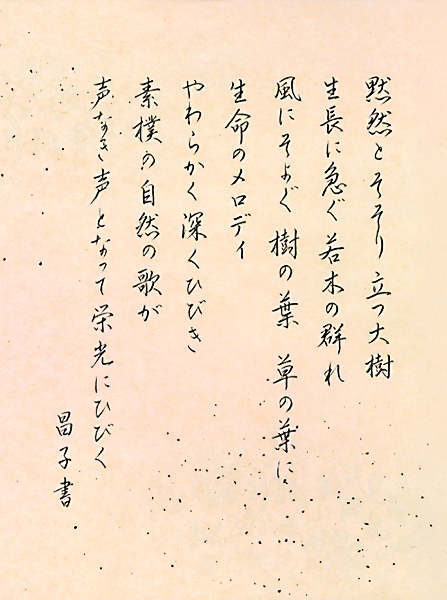 黙然とそそり立つ大樹
生長に急ぐ若木の群れ
風にそよぐ樹の葉 草の葉に
生命のメロディ
やわらかく深くひびき
素樸の自然の歌が
声なき声となって栄光にひびく
昌子書